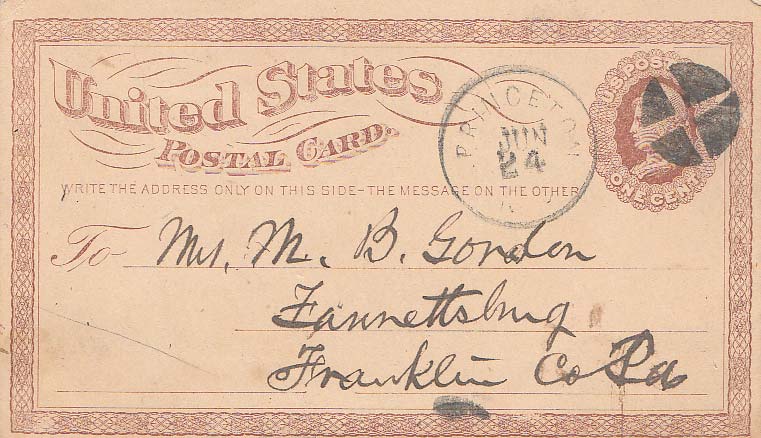 United States
POSTAL CARD.
WRITE THE ADDRESS ONLY ON THIS SIDE-THE MESSAGE ON THE OTHER
PRINCETON
JUN
24
U.S. POST
ONE CENT
To Mrs. M. B. Gordon
Fannettsburg
Franklin Co Pa